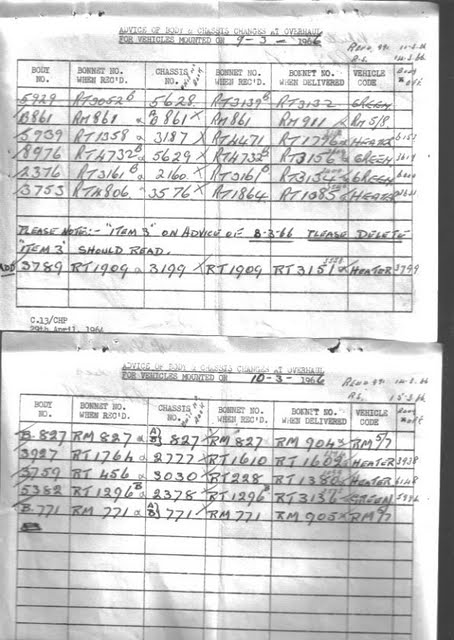 ADVICE OF BODY & CHASSIS CHANGES AT OVERHAUL
FOR VEHICLES MOUNTED ON 9-3-1966
BODY NO. BONNET NO. WHEN REC'D. CHASSIS NO. BONNET NO. WHEN REC'D. BONNET NO. WHEN DELIVERED VEHICLE CODE
5929 RT3052B 5628 RT3139B RT3132 GREEN
B861 RM861 B861 RM861 RM911 RM5/8
5939 RT1358 3187 RT4471 RT1796 HEATER
8976 RT4732B 5629 RT4732B RT3156 GREEN
2376 RT3161B 2160 RT3161B RT3134 GREEN
3753 3576 RT1864 RT1085 HEATER
PLEASE NOTE:- "ITEM 3" ON ADVICE OF 8-3-66 PLEASE DELETE
"ITEM 3" SHOULD READ.
ADD 3789 RT1909 3199 RT1909 RT3151 HEATER 3799
C.13/CHP
29th April, 1964
ADVICE OF BODY & CHASSIS CHANGES AT OVERHAUL
FOR VEHICLES MOUNTED ON 10-3-1966
BODY NO. BONNET NO. WHEN REC'D. CHASSIS NO. BONNET NO. WHEN REC'D. BONNET NO. WHEN DELIVERED VEHICLE CODE
B.827 RM827 A B 827 RM827 RM904 RM5/7
3927 RT1764 2777 RT1610 RT1602 HEATER 3938
3759 RT456 3030 RT228 RT1380 HEATER
5382 RT1296B 2378 RT1296 RT3136 GREEN
B.771 RM771 A B 771 RM771 RM905